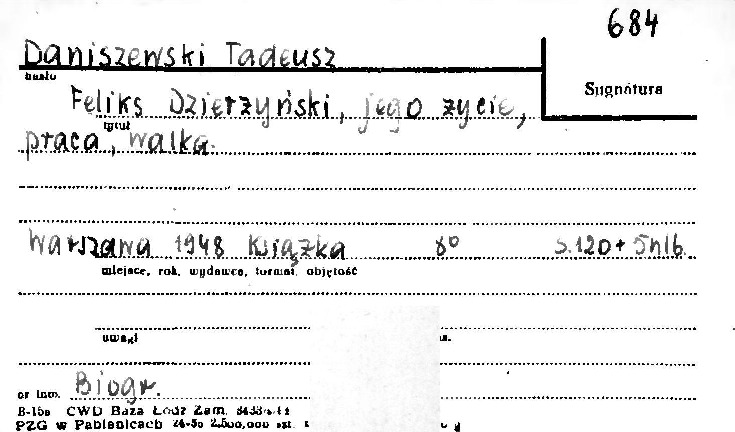 684
Daniszewski Tadeusz
hasło
Sygnatura
Feliks Dzierżyński, jego życie,
tytuł
praca, walka.
Warszawa 1948 Książka 8° S.120+5nlb.
miejsce, rok, wydawca, format, objętość
uwagi
nr inw. Biogr.
B-15a CWD Baza Łódź Zam.
PZG w Pabianicach 24-50 2.500.000 szt.